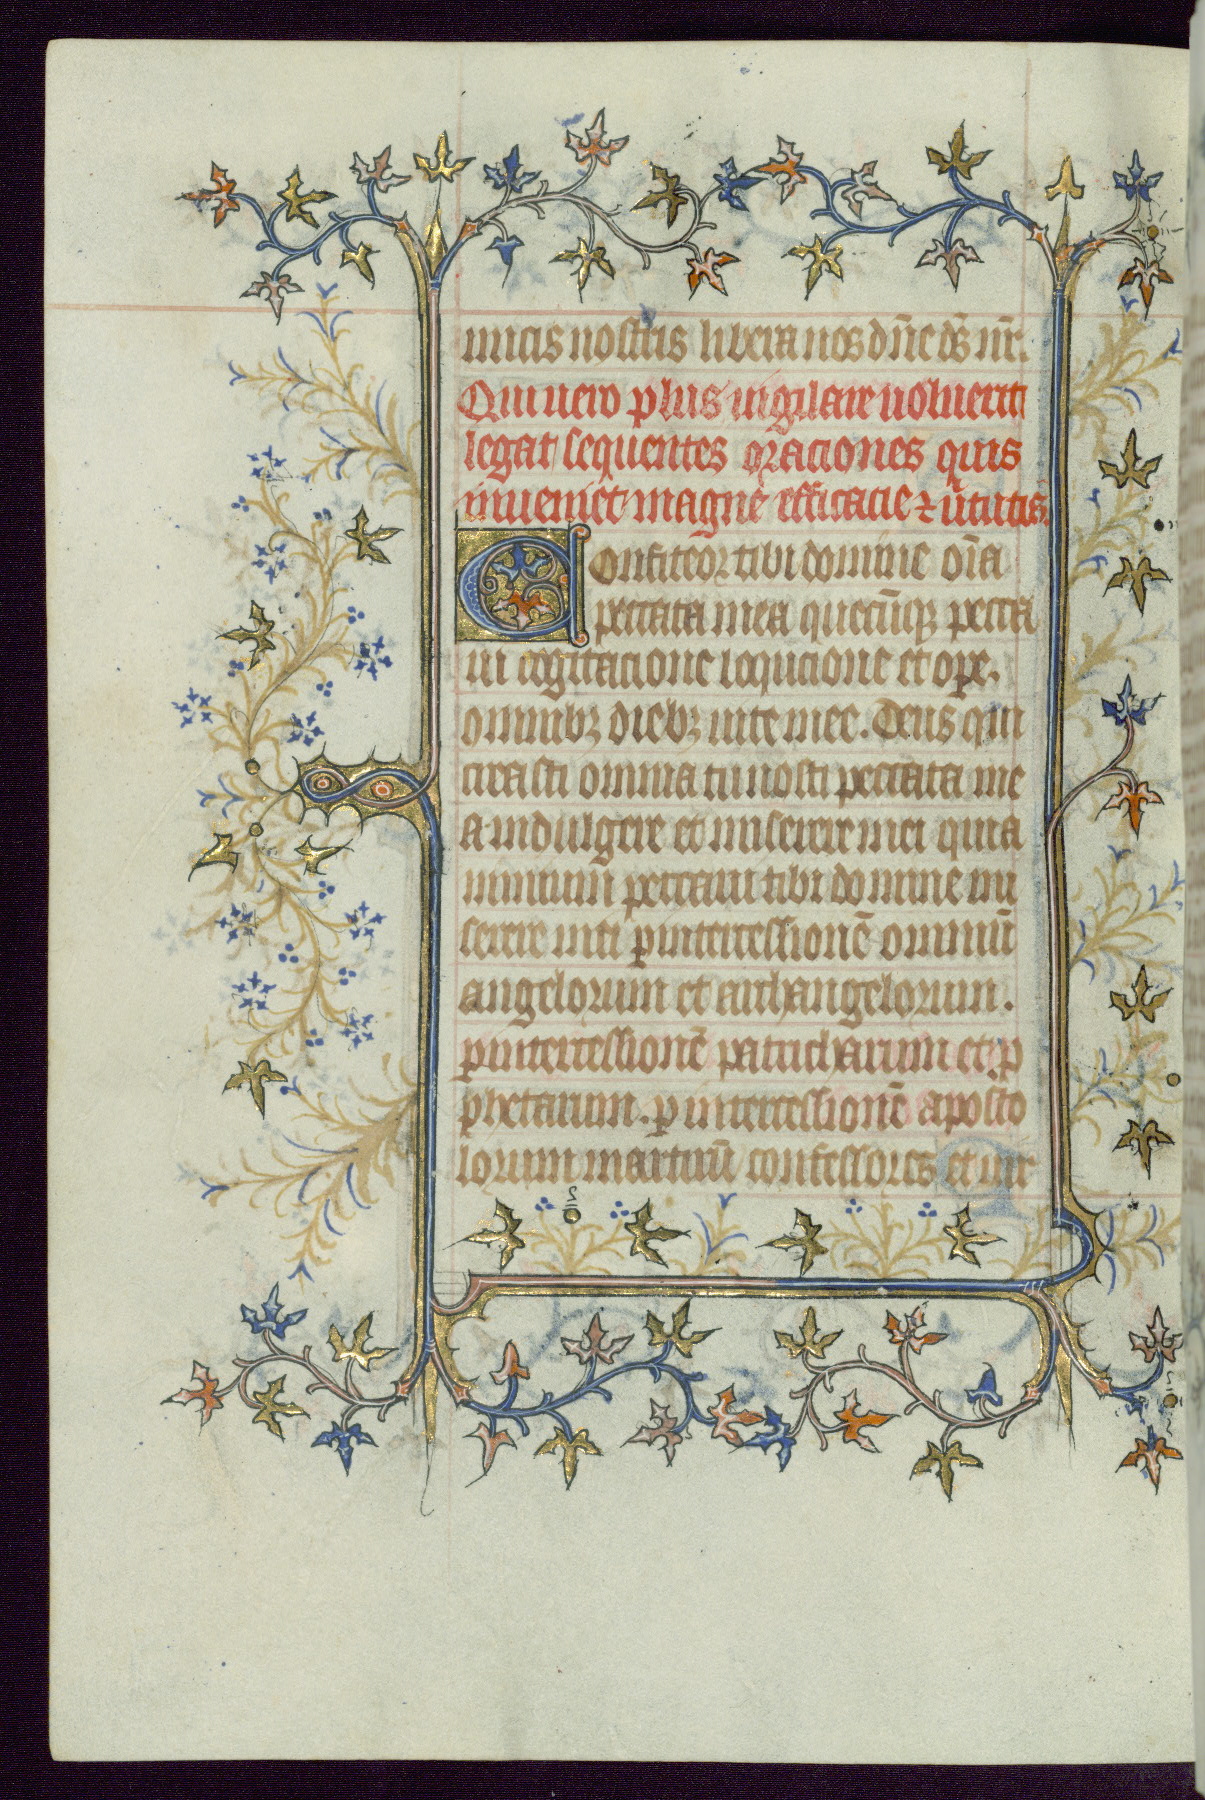 micis nostris libera nos dn̄e ds̄ nr̄.
Qui uero plus uigilare uoluerit
legat sequentes oraciones quis
inueniet magne efficacie ⁊ ūtutis.
Confiteor tibi domine oīa
peccata mea quecūq; pecca
ui cogitacione loqucione et oꝑe.
omnibꝫ diebꝫ uite mee. Deus qui
creasti omnia tu nosti peccata me
a indulgere et miserere mei quia
nimium peccaui tibi domine mi
serere mei ꝑ intercessionē omniū
angelorum et archangelorum.
ꝑ intercessionē patricharum et ꝓ
phetarum. ꝑ intercessionē aposto
lorum martirū confessores et uir